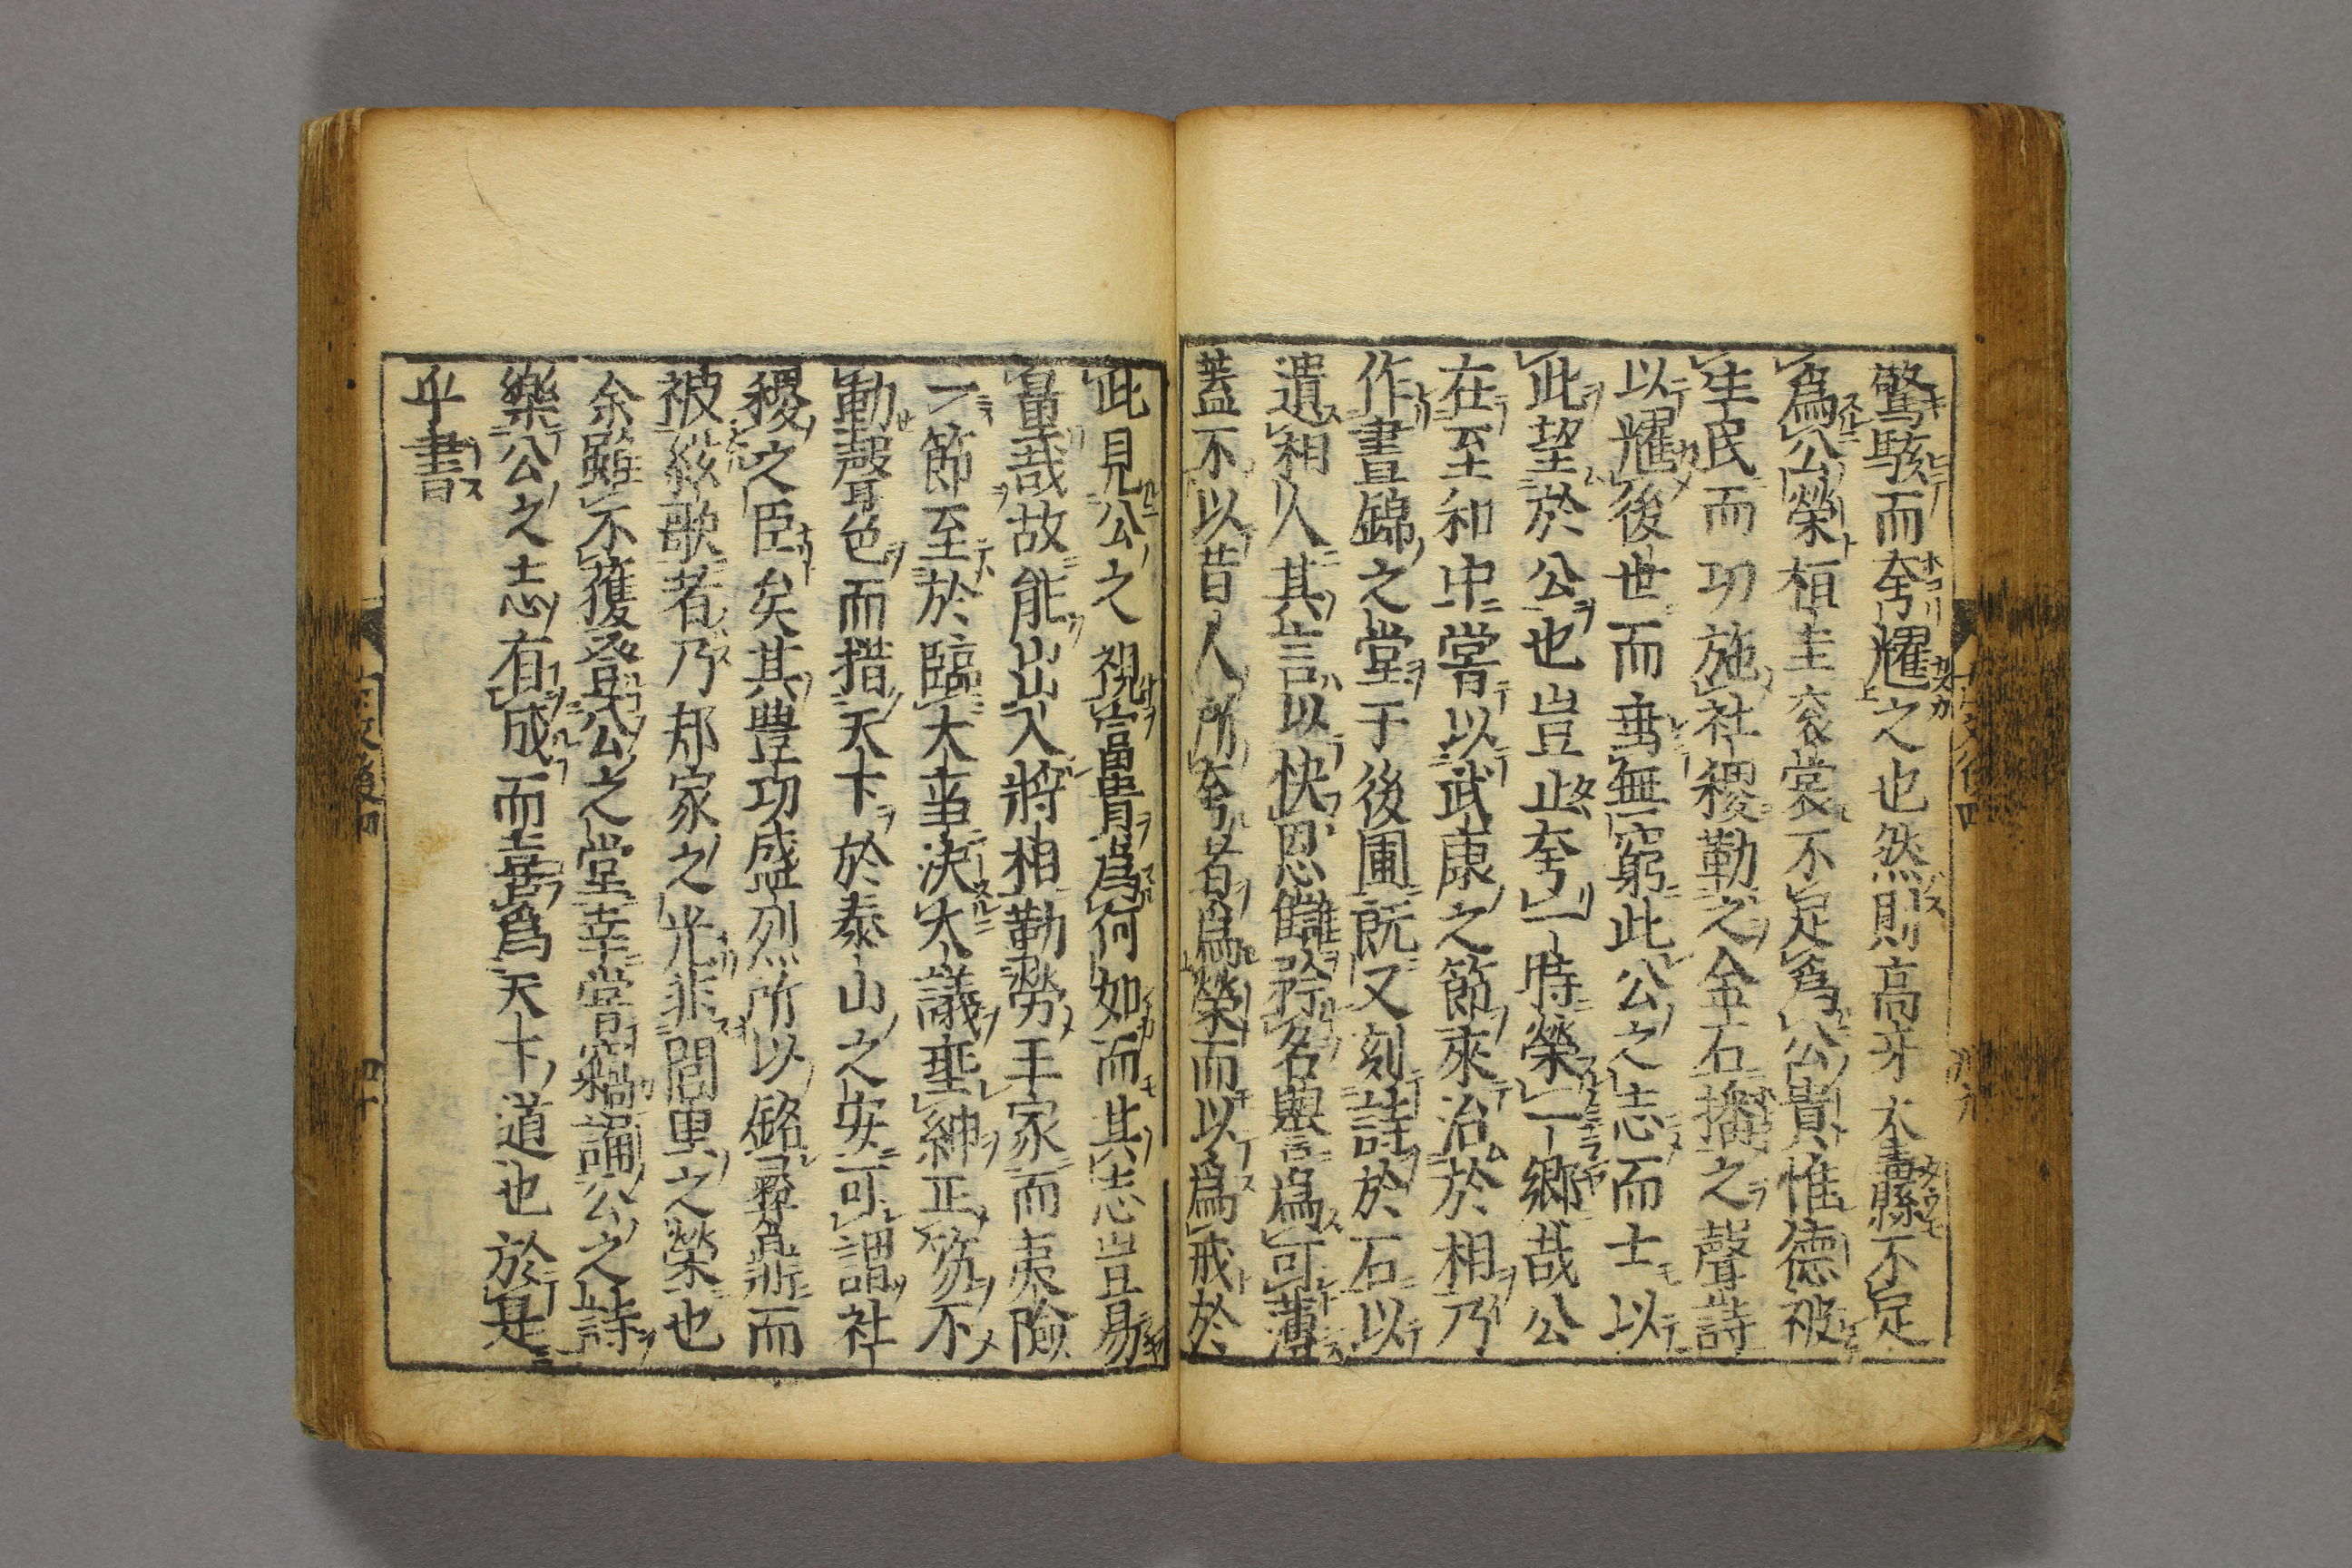 驚駭而夸耀之也然則高牙大纛不足
爲公榮桓圭袞裳不足爲公貴惟德被
生民而功施社稷勒之金石播之聲詩
以耀後世而垂無窮此公之志而士以
此望於公也豈止夸一時榮一鄉哉公
在至和中嘗以武康之節來治於相乃
作晝錦之堂于後圃既又刻詩於石以
遺相人其言以快恩讎矜名譽爲可薄
蓋不以昔人所夸者爲榮而以爲戒於
此見公之視富貴爲何如而其志豈易
量哉故能出入將相勤勞王家而夷險
一節至於臨大亊決大議垂紳正笏不
動聲色而措天下於泰山之安可謂社
稷之臣矣其豊功盛烈所以銘彛鼎而
被絃歌者乃邦家之光非閭里之榮也
余雖不獲登公之堂幸嘗竊誦公之詩
樂公之志有成而喜爲天下道也於是
乎書